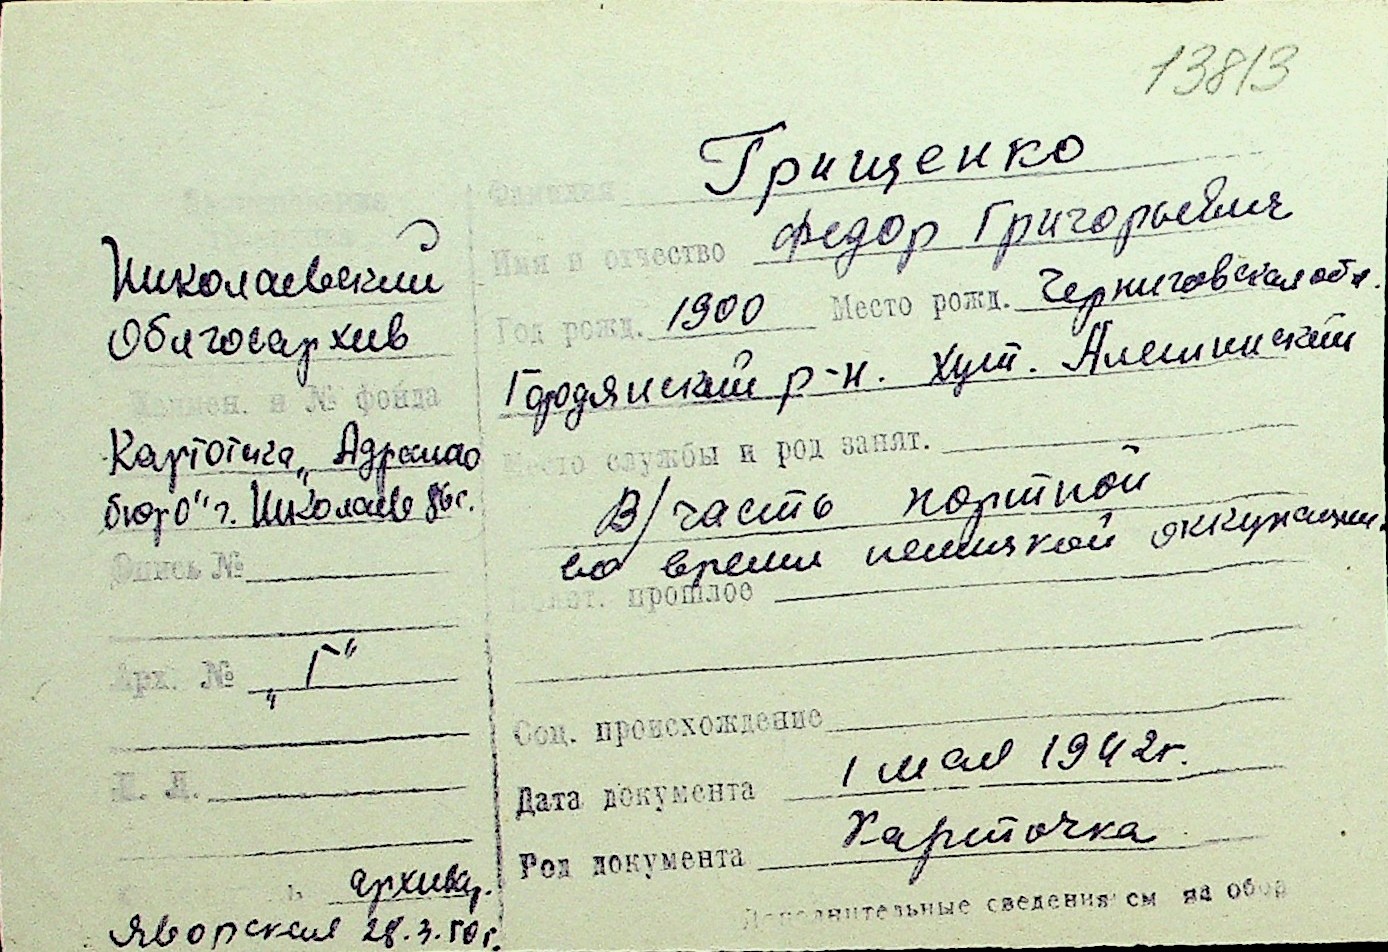 13813
Фамилия Грищенко
Имя и отчество Федор Григорьевич
Год рожд. 1900 Место рожд. Черниговская обл.
Городянский р-н. хут. Алешинский
Место службы и род занят.
В/часть портной
во время немецкой оккупации.
Полит. прошлое
Соц. происхождение
Дата документа 1 мая 1942 г.
Род документа Карточка
Дополнительные сведения см на обор
Николаевский
Облгосархив
Наимен. и № фонда
Картотека „Адресного
бюро" г. Николаев
Опись №
Арх. № „Г"
Л. Д.
архивар.
Яворская 28.3.50 г.